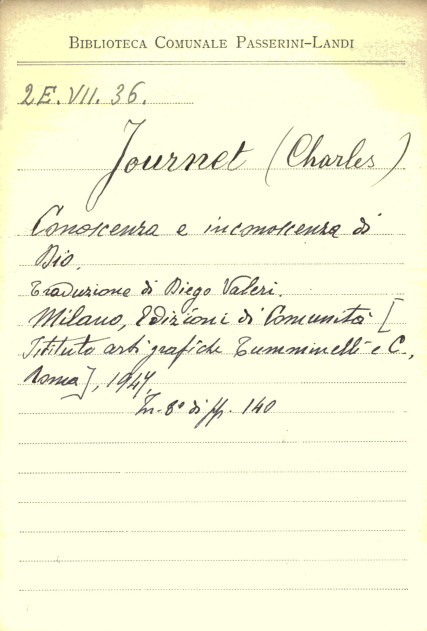 BIBLIOTECA COMUNALE PASSERINI-LANDI
2E. VII. 36.
Journet (Charles)
Conoscenza e inconoscenza di
Dio.
Traduzione di Diego Valeri.
Milano, Edizioni di Comunità [
Istituto arti grafiche Tumminelli e C.,
Roma], 1947,
In-8º di pp. 140